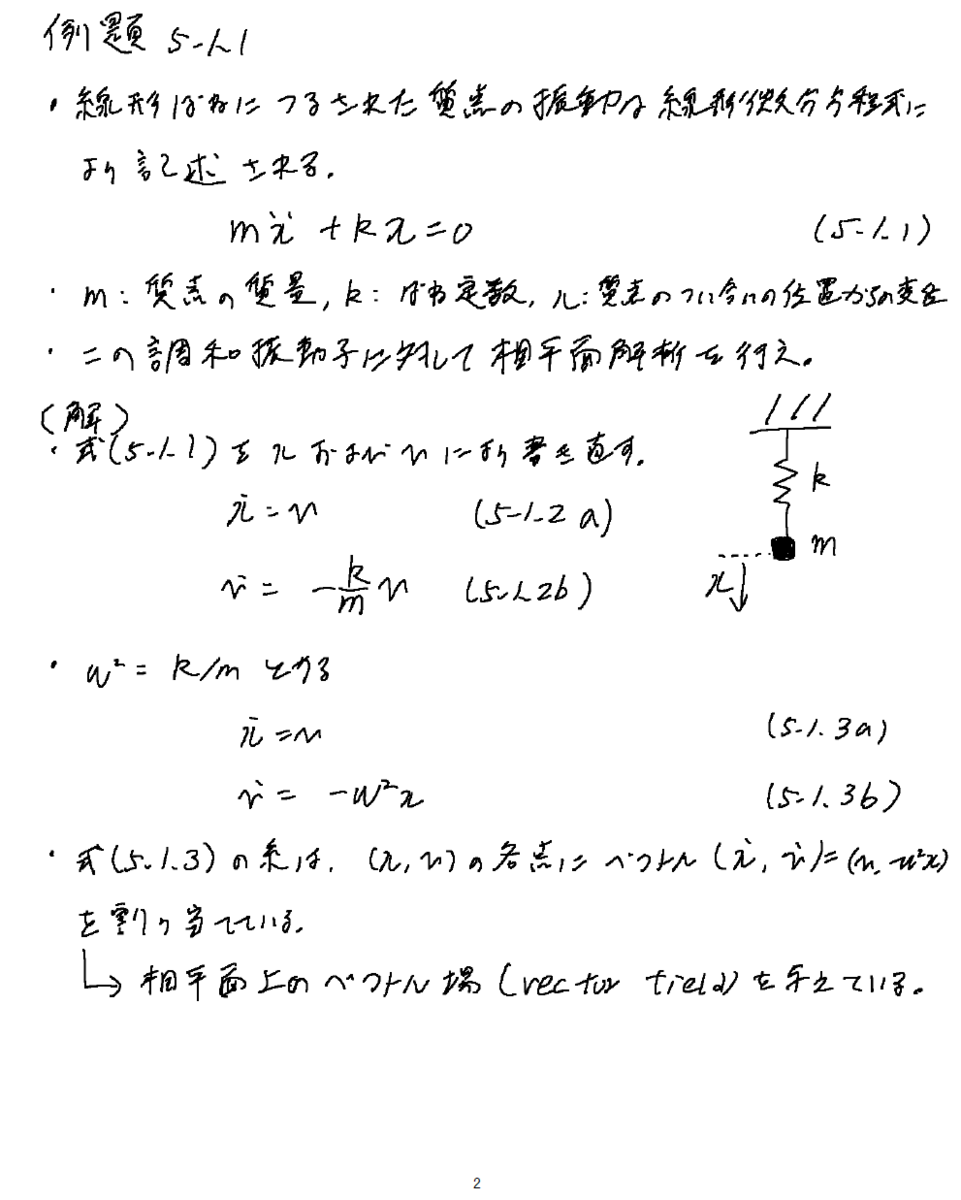 例題 5-1.1
・線形ばねにつるされた質点の振動は線形微分方程式に
より記述される.
mẍ + kx = 0 (5-1.1)
・m: 質点の質量, k: ばね定数, x: 質点のつり合いの位置からの変位
・この調和振動子に対して相平面解析を行え。
(解)
・式(5-1.1)をxおよびvにより書き直す.
k
ẋ = v (5-1.2 a)
m
v̇ = -k/m v (5-1.2b)
x
・ω² = k/m とする
ẋ = v (5-1.3a)
v̇ = -ω²x (5-1.3b)
・式(5.1.3)の系は, (x, v)の各点にベクトル(ẋ, v̇)=(v, -ω²x)
を割り当てている.
↳ 相平面上のベクトル場 (vector field)を与えている。
2